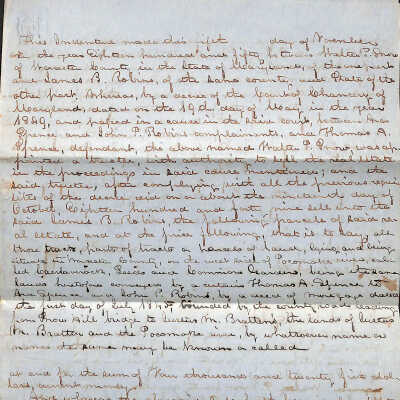 This Indenture made this fifth day of November
in the year Eighteen hundred and fifty between Walter P. Snow
of Worcester County in the State of Maryland, of the one part
and James B. Robins, of the same county, and State of the
other part. Whereas, by a decree of the Court of Chancery of
Maryland, dated on the 19th day of May, in the year
1849, and passed in a cause in the said court, between Ann
Spence and John P. Robins complainants, and Thomas A.
Spence, defendant, the above named Walter P. Snow, was ap-
pointed a trustee, with authority to sell the real estate
in the proceedings in said cause mentioned; and the
said trustee, after complying with all the previous requi-
sites of the decree did on or about the nineteenth day of
October, Eighteen hundred and forty sell unto the
said James B. Robins the following parcels of said re-
al estate, and at the price following, that is to say, all
those tracts, parts of tracts or parcels of land, lying and being
situate in Worcester County, on the west side of Pocomoke river, call-
ed and Common Garden, being the same
lands heretofore conveyed by a certain Thomas A. Spence to
Ann Spence and John P. Robins, by a deed of mortgage dated
the first day of July 1845, bounded by the county road leading
from Snow Hill bridge to M. Bratten's, the lands of
M. Bratten and the Pocomoke river, by whatsoever name or
names the same may be known or called
at and for the sum of three thousand and twenty five dol-
lars, current money.
And whereas the